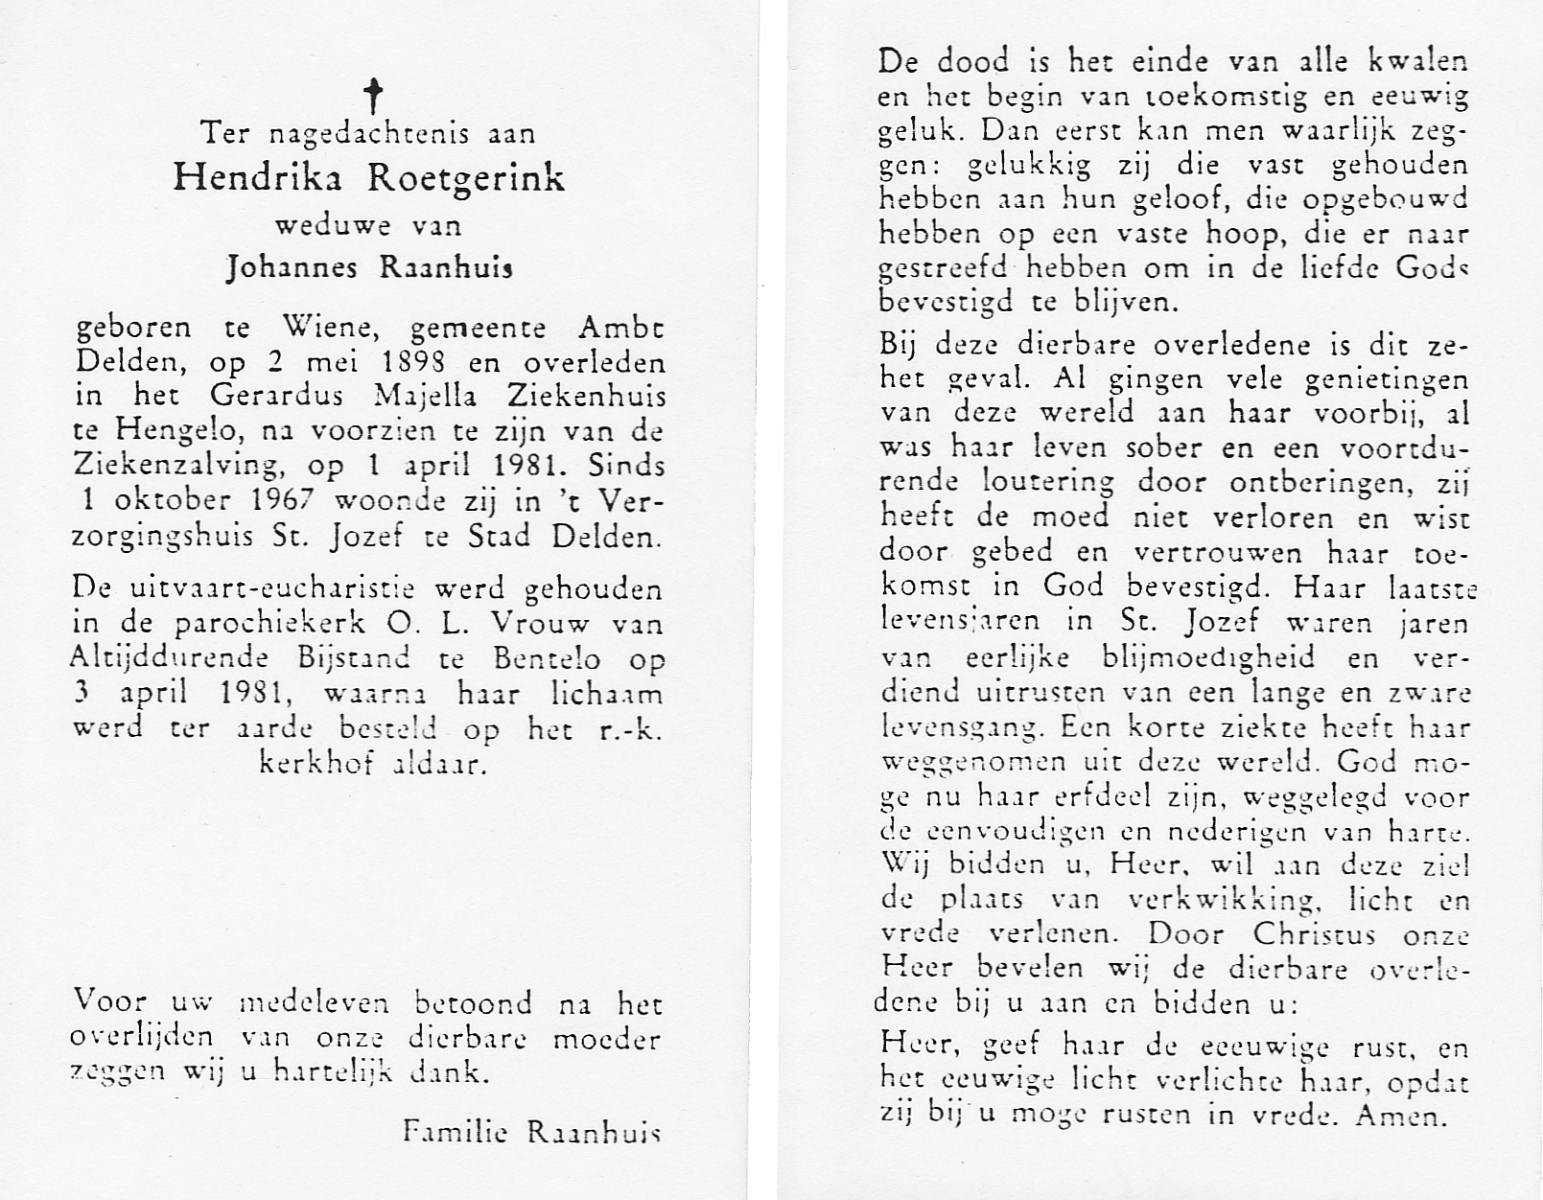 Ter nagedachtenis aan
Hendrika Roetgerink
weduwe van
Johannes Raanhuis
geboren te Wiene, gemeente Ambt
Delden, op 2 mei 1898 en overleden
in het Gerardus Majella Ziekenhuis
te Hengelo, na voorzien te zijn van de
Ziekenzalving, op 1 april 1981. Sinds
1 oktober 1967 woonde zij in 't Ver-
zorgingshuis St. Jozef te Stad Delden.
De uitvaart-eucharistie werd gehouden
in de parochiekerk O. L. Vrouw van
Altijddurende Bijstand te Bentelo op
3 april 1981, waarna haar lichaam
werd ter aarde besteld op het r.-k.
kerkhof aldaar.
Voor uw medeleven betoond na het
overlijden van onze dierbare moeder
zeggen wij u hartelijk dank.
Familie Raanhuis
De dood is het einde van alle kwalen
en het begin van toekomstig en eeuwig
geluk. Dan eerst kan men waarlijk zeg-
gen: gelukkig zij die vast gehouden
hebben aan hun geloof, die opgebouwd
hebben op een vaste hoop, die er naar
gestreefd hebben om in de liefde Gods
bevestigd te blijven.
Bij deze dierbare overledene is dit ze-
het geval. Al gingen vele genietingen
van deze wereld aan haar voorbij, al
was haar leven sober en een voortdu-
rende loutering door ontberingen, zij
heeft de moed niet verloren en wist
door gebed en vertrouwen haar toe-
komst in God bevestigd. Haar laatste
levensjaren in St. Jozef waren jaren
van eerlijke blijmoedigheid en ver-
diend uitrusten van een lange en zware
levensgang. Een korte ziekte heeft haar
weggenomen uit deze wereld. God mo-
ge nu haar erfdeel zijn, weggelegd voor
de eenvoudigen en nederigen van harte.
Wij bidden u, Heer, wil aan deze ziel
de plaats van verkwikking, licht en
vrede verlenen. Door Christus onze
Heer bevelen wij de dierbare overle-
dene bij u aan en bidden u:
Heer, geef haar de eeeuwige rust, en
het eeuwige licht verlichte haar, opdat
zij bij u moge rusten in vrede. Amen.